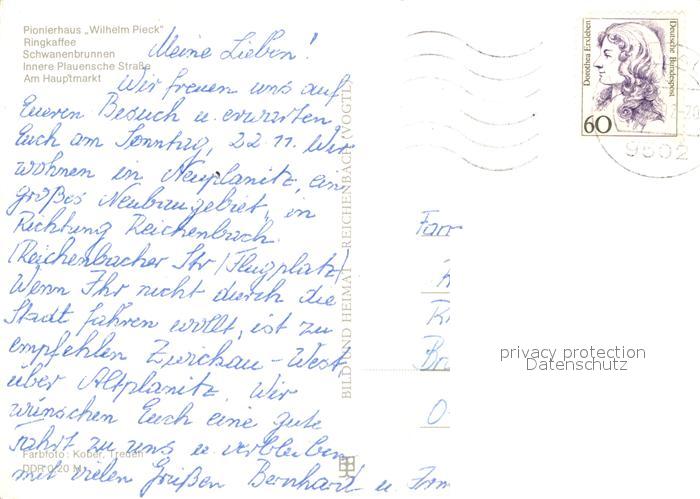 Pionierhaus „Wilhelm Pieck"
Ringkaffee
Schwanenbrunnen
Innere Plauensche Straße
Am Hauptmarkt
Meine Lieben!
Wir freuen uns auf
Eueren Besuch u. erwarten
Euch am Sonntag, 22.11. Wir
wohnen in Neuplanitz, ein
großes Neubaugebiet, in
Richtung Reichenbach.
/Reichenbacher Str/Flugplatz/
Wenn Ihr nicht durch die
Stadt fahren wollt, ist zu
empfehlen Zwickau-West
über Altplanitz. Wir
wünschen Euch eine gute
Fahrt zu uns u. verbleiben
mit vielen Grüßen Bernhard u.
Farbfoto: Kober, Treuen
DDR 0,20 M
BILD UND HEIMAT REICHENBACH (VOGTL)
Dorothea Erxleben
Deutsche Bundespost
60
9502
Fam
Br
O-
privacy protection
Datenschutz